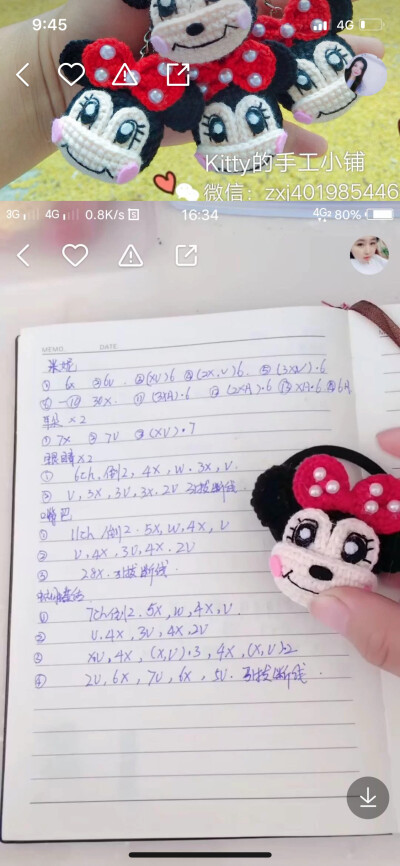 9:45
4G
Kitty的手工小铺
微信：zxj401985446
3G 4G 0.8K/s 16:34 4G 80%
MEMO. DATE
米妮
① 6x ② 6v ③ (xv)6 ④ (2x,v)6 ⑤ (3xv)·6
⑥-⑩ 30x ⑪ (3xA)·6 ⑫ (2xA)·6 ⑬ xA·6 ⑭ 6A
耳朵 x2
① 7x ② 7v ③ (xv)·7
眼睛 x2
① 6ch, 倒2, 4x, w. 3x, v.
② v, 3x, 3v, 3x. 2v 引拔断线.
嘴巴
① 11ch /倒2. 5x, w, 4x, v
② v, 4x, 3v, 4x. 2v
③ 引拔断线.
① 7ch 倒2. 5x, w, 4x, v.
② v. 4x, 3v, 4x, 2v
③ xv, 4x, (x,v)·3, 4x, (x,v)·2
④ 2v, 6x, 7v, 6x, 5v. 引拔断线.